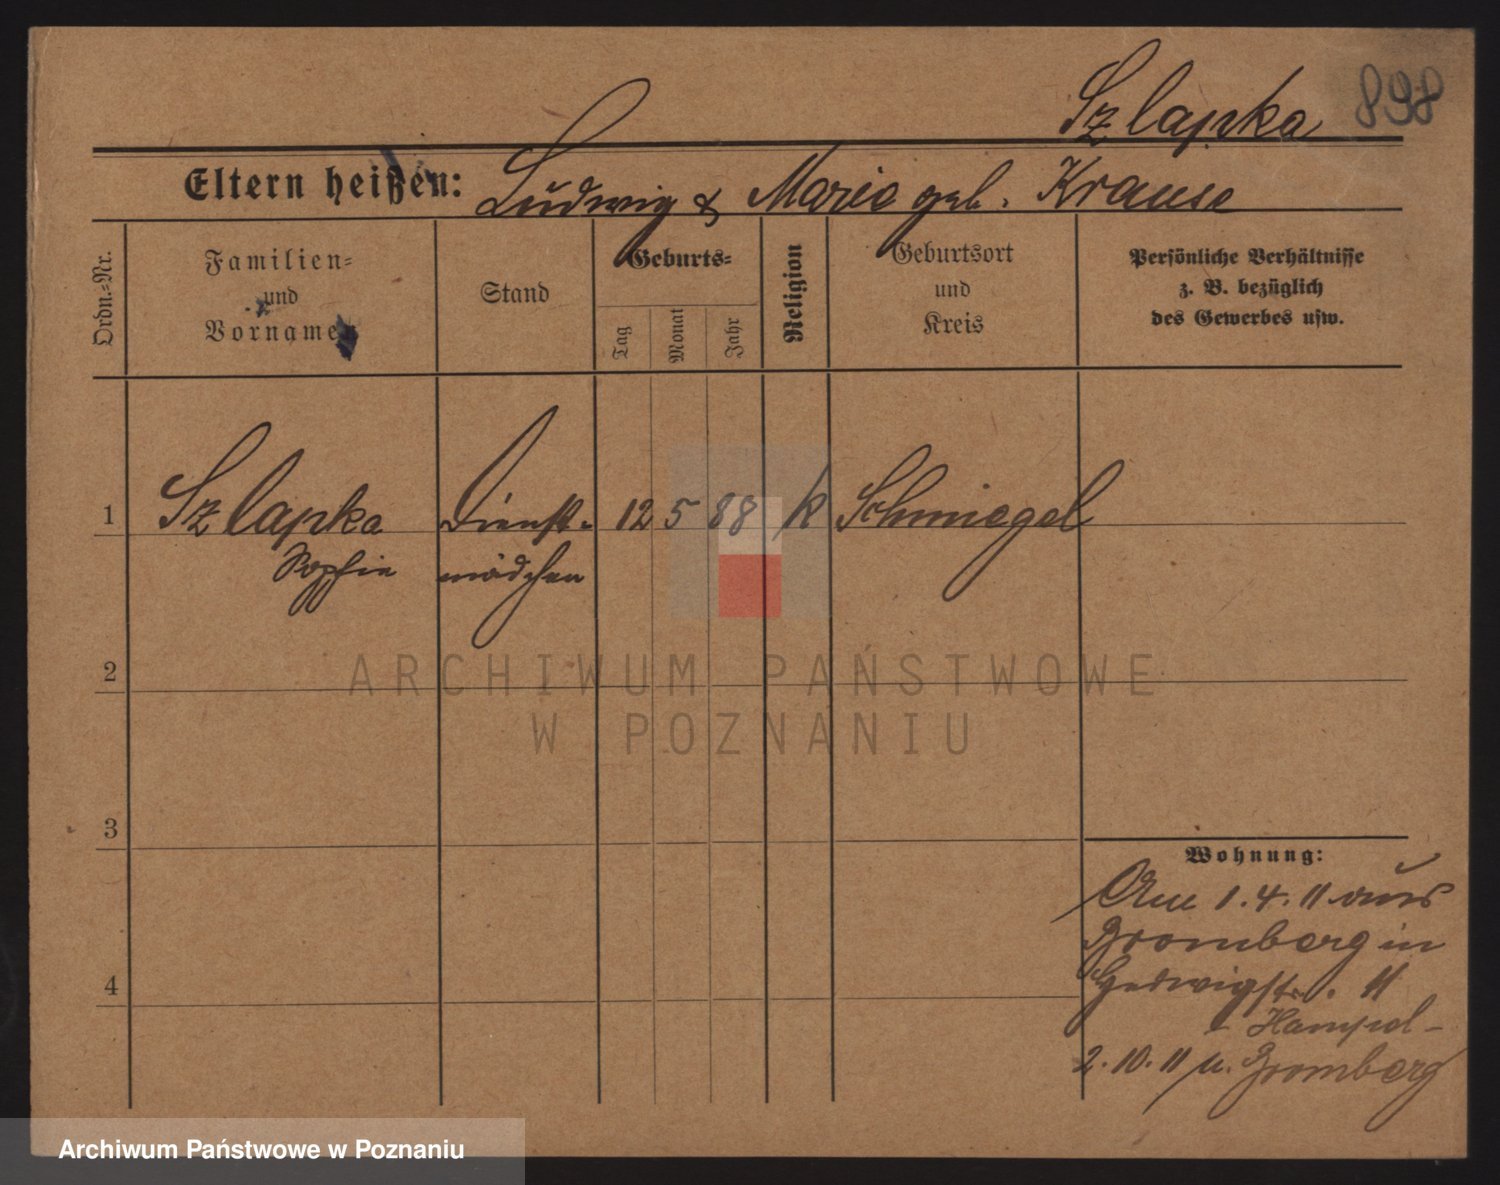 Szlapka 898
Eltern heißen: Ludwig & Marie geb. Krause
Ordn.-Nr.
Familien-
und
Vornamen
Stand
Geburts-
Tag
Monat
Jahr
Religion
Geburtsort
und
Kreis
Persönliche Verhältnisse
z. B. bezüglich
des Gewerbes usw.
1 Szlapka Dienst- 12 5 88 k Schmiegel
Sophie mädchen
2
ARCHIWUM PAŃSTWOWE
W POZNANIU
3
Wohnung:
Am 1.4.11 aus
Bromberg in
Hedwigstr. 11
- Hampel -
4
2.10.11 n. Bromberg
Archiwum Państwowe w Poznaniu